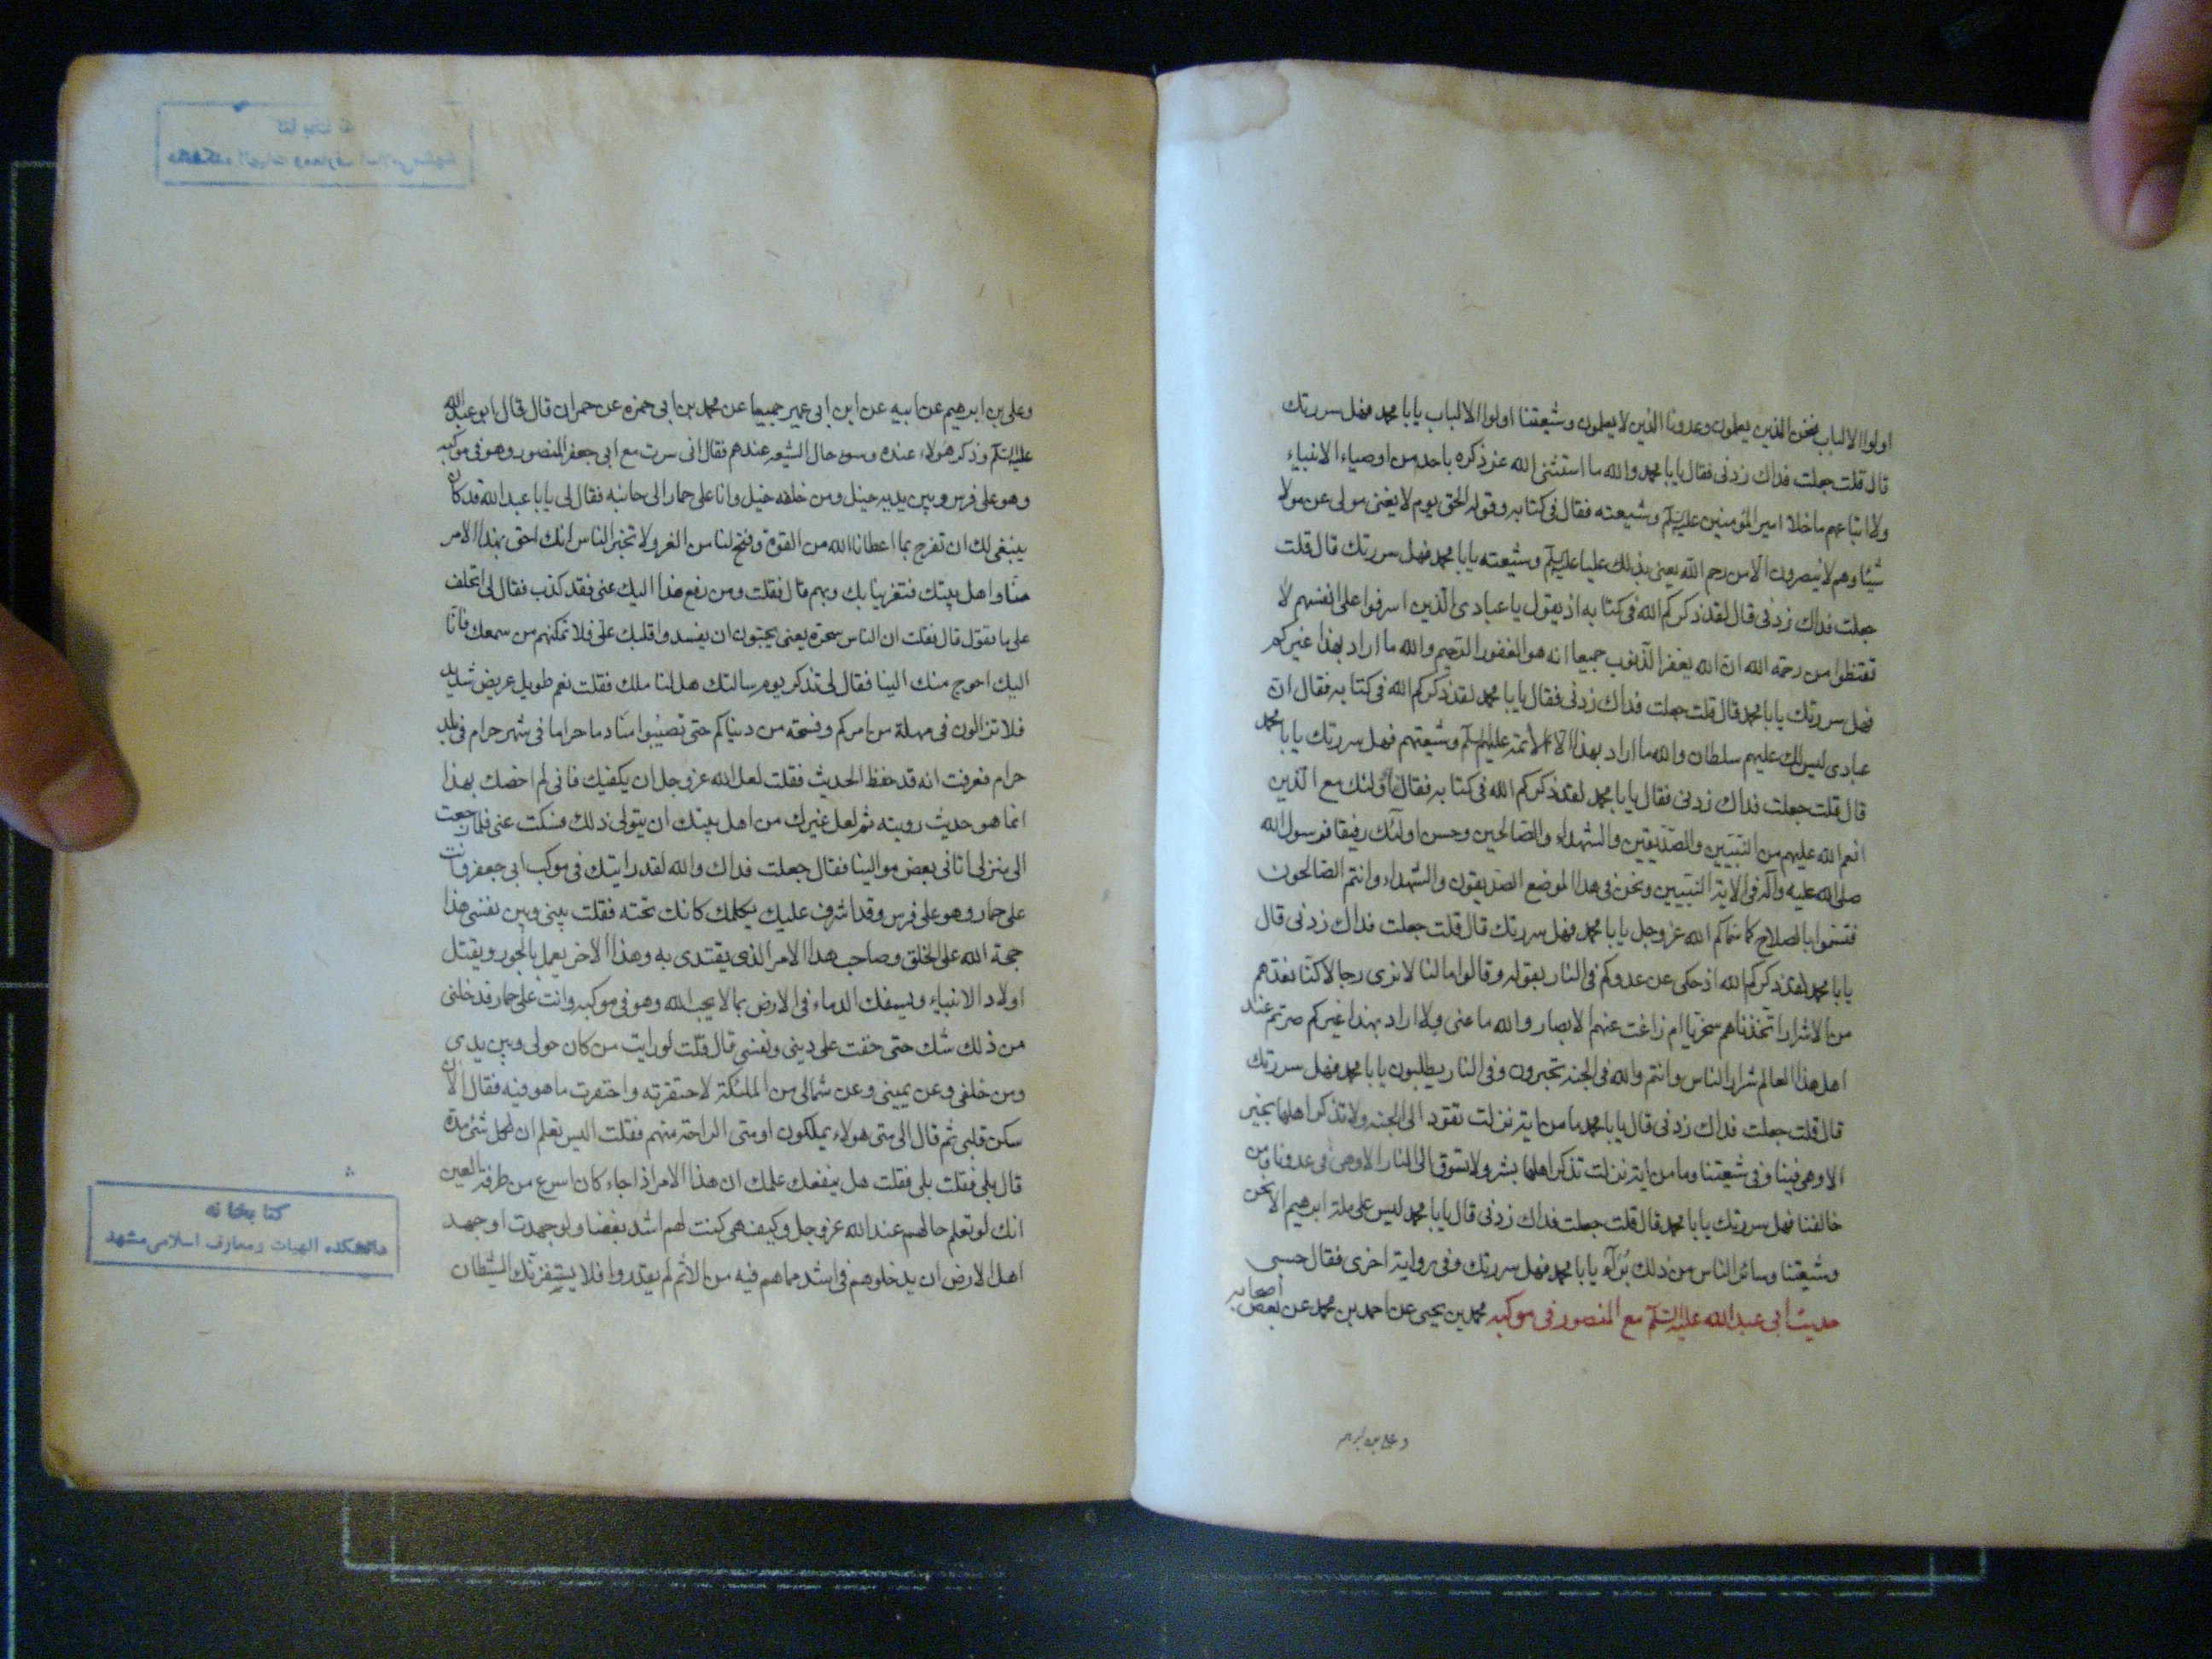 اولوا الالباب فنحن الذين يعلمون وعدونا الذين لا يعلمون وشيعتنا اولوا الالباب يابا محمد فهل سررتك
قال قلت جعلت فداك زدنى فقال يابا محمد والله ما استثنى الله عز ذكره باحد من اوصياء الانبياء
ولا اتباعهم ما خلا امير المؤمنين عليه السلم وشيعته فقال فى كتابه وقوله الحق يوم لا يغنى مولى عن مولا
شيئا وهم لا ينصرون الا من رحم الله يعنى بذلك عليا عليه السلم وشيعته يابا محمد فهل سررتك قال قلت
جعلت فداك زدنى قال لقد ذكركم الله فى كتابه اذ يقول يا عبادى الذين اسرفوا على انفسهم لا
تقنطوا من رحمة الله ان الله يغفر الذنوب جميعا انه هو الغفور الرحيم والله ما اراد بهذا غيركم
فهل سررتك يابا محمد قال قلت جعلت فداك زدنى فقال يابا محمد لقد ذكركم الله فى كتابه فقال ان
عبادى ليس لك عليهم سلطان والله ما اراد بهذا الا الائمة عليهم السلم وشيعتهم فهل سررتك يابا محمد
قال قلت جعلت فداك زدنى فقال يابا محمد لقد ذكركم الله فى كتابه فقال فاولئك مع الذين
انعم الله عليهم من النبيين والصديقين والشهداء والصالحين وحسن اولئك رفيقا فرسول الله
صلى الله عليه وآله فى الاية النبيين ونحن فى هذا الموضع الصديقون والشهداء وانتم الصالحون
فتسموا بالصلاح كما سماكم الله عز وجل يابا محمد فهل سررتك قال قلت جعلت فداك زدنى قال
يابا محمد لقد ذكركم الله اذ حكى عن عدوكم فى النار بقوله وقالوا ما لنا لا نرى رجالا كنا نعدهم
من الاشرار اتخذناهم سخريا ام زاغت عنهم الابصار والله ما عنى ولا اراد بهذا غيركم صرتم عند
اهل هذا العالم شرار الناس وانتم والله فى الجنة تحبرون وفى النار يطلبون يابا محمد فهل سررتك
قال قلت جعلت فداك زدنى قال يابا محمد ما من اية نزلت تقود الى الجنة ولا تذكر اهلها بخير
الا وهى فينا وفى شيعتنا وما من اية نزلت تذكر اهلها بشر ولا تسوق الى النار الا وهى فى عدونا ومن
خالفنا فهل سررتك يابا محمد قال قلت جعلت فداك زدنى قال يابا محمد ليس على ملة ابرهيم الا نحن
وشيعتنا وسائر الناس من ذلك برآء يابا محمد فهل سررتك وفى رواية اخرى فقال حسبى
حديث ابى عبد الله عليه السلم مع المنصور فى موكبه محمد بن يحيى عن احمد بن محمد عن بعض اصحابه
وعلى بن ابرهيم
وعلى بن ابرهيم عن ابيه عن ابن ابى عمير جميعا عن محمد بن ابى حمزه عن حمران قال قال ابو عبد الله
عليه السلم وذكر هولاء عنده وسوء حال الشيعه عندهم فقال انى سرت مع ابى جعفر المنصور وهو فى موكبه
وهو على فرس وبين يديه خيل ومن خلفه خيل وانا على حمار الى جانبه فقال لى يابا عبد الله قد كان
ينبغى لك ان تفرح بما اعطانا الله من القوة وفتح لنا من العز ولا تخبر الناس انك احق بهذا الامر
منا واهل بيتك فتغرينا بك وبهم قال فقلت ومن رفع هذا اليك عنى فقد كذب فقال لى اتحلف
على ما تقول قال فقلت ان الناس سحرة يعنى يحبون ان يفسدوا قلبك على فلا تمكنهم من سمعك فانا
اليك احوج منك الينا فقال لى تذكر يوم سالتك هل لنا ملك فقلت نعم طويل عريض شديد
فلا تزالون فى مهلة من امركم وفسحة من دنياكم حتى تصيبوا منا دما حراما فى شهر حرام فى بلد
حرام فعرفت انه قد حفظ الحديث فقلت لعل الله عز وجل ان يكفيك فانى لم اخصك بهذا
انما هو حديث رويته ثم لعل غيرك من اهل بيتك ان يتولى ذلك فسكت عنى فلما رجعت
الى منزلى اتانى بعض موالينا فقال جعلت فداك والله لقد رايتك فى موكب ابى جعفر وانت
على حمار وهو على فرس وقد اشرف عليك يكلمك كانك تحته فقلت بينى وبين نفسى هذا
حجة الله على الخلق وصاحب هذا الامر الذى يقتدى به وهذا الاخر يعمل بالجور ويقتل
اولاد الانبياء ويسفك الدماء فى الارض بما لا يحب الله وهو فى موكبه وانت على حمار فدخلنى
من ذلك شك حتى خفت على دينى ونفسى قال قلت لو رايت من كان حولى وبين يدى
ومن خلفى وعن يمينى وعن شمالى من الملئكة لاحتقرته واحتقرت ما هو فيه فقال الان
سكن قلبى ثم قال الى متى هولاء يملكون او متى الراحة منهم فقلت اليس تعلم ان لكل شئ مدة
قال بلى فقلت بلى فقلت هل ينفعك علمك ان هذا الامر اذا جاء كان اسرع من طرفة العين
انك لو تعلم حالهم عند الله عز وجل وكيف هى كنت لهم اشد بغضا ولو جهدت او جهد
اهل الارض ان يدخلوهم فى اشد مما هم فيه من الاثم لم يقدروا فلا يستفزنك الشيطان
كتابخانه
دانشكده الهيات ومعارف اسلامى مشهد